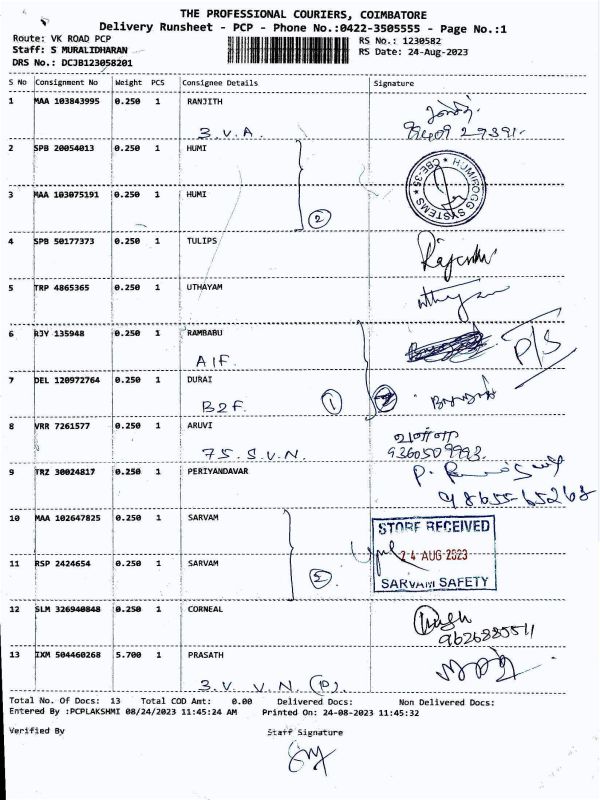 THE PROFESSIONAL COURIERS, COIMBATORE
Delivery Runsheet - PCP - Phone No.:0422-3505555 - Page No.:1
Route: VK ROAD PCP RS No.: 1230582
Staff: S MURALIDHARAN RS Date: 24-Aug-2023
DRS No.: DCJB123058201
S No Consignment No Weight PCS Consignee Details Signature
1 MAA 103843995 0.250 1 RANJITH
3.V.A.
2 SPB 20054013 0.250 1 HUMI
HUMIFOGG SYSTEMS
CBE-35
3 MAA 103075191 0.250 1 HUMI
2
4 SPB 50177373 0.250 1 TULIPS
5 TRP 4865365 0.250 1 UTHAYAM
6 RJV 135948 0.250 1 RAMBABU
A1F. P/S
7 DEL 120972764 0.250 1 DURAI
B2F. 1
8 VRR 7261577 0.250 1 ARUVI
7S. S.V.N. 9360509993.
9 TRZ 30024817 0.250 1 PERIYANDAVAR
9865565268
10 MAA 102647825 0.250 1 SARVAM
STORE RECEIVED
24 AUG 2023
SARVAM SAFETY
11 RSP 2424654 0.250 1 SARVAM
12 SLM 326940848 0.250 1 CORNEAL
9626885511
13 IXM 504460268 5.700 1 PRASATH
3.V. V.N. (P).
Total No. Of Docs: 13 Total COD Amt: 0.00 Delivered Docs: Non Delivered Docs:
Entered By :PCPLAKSHMI 08/24/2023 11:45:24 AM Printed On: 24-08-2023 11:45:32
Verified By Staff Signature